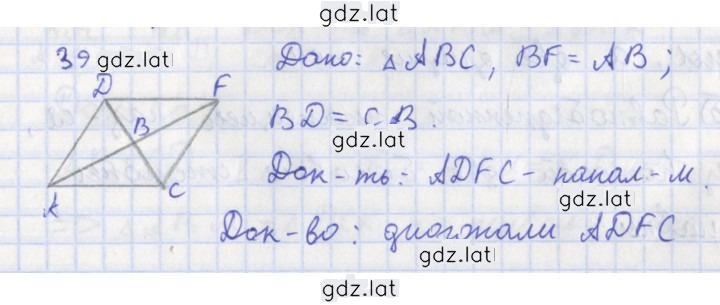 gdz.lat
39 gdz.lat Дано: △ABC, BF = AB;
D F
B BD = CB.
gdz.lat
A C Док-ть: ADFC - парал-м.
gdz.lat
Док-во: диагонали ADFC
gdz.lat
gdz.lat